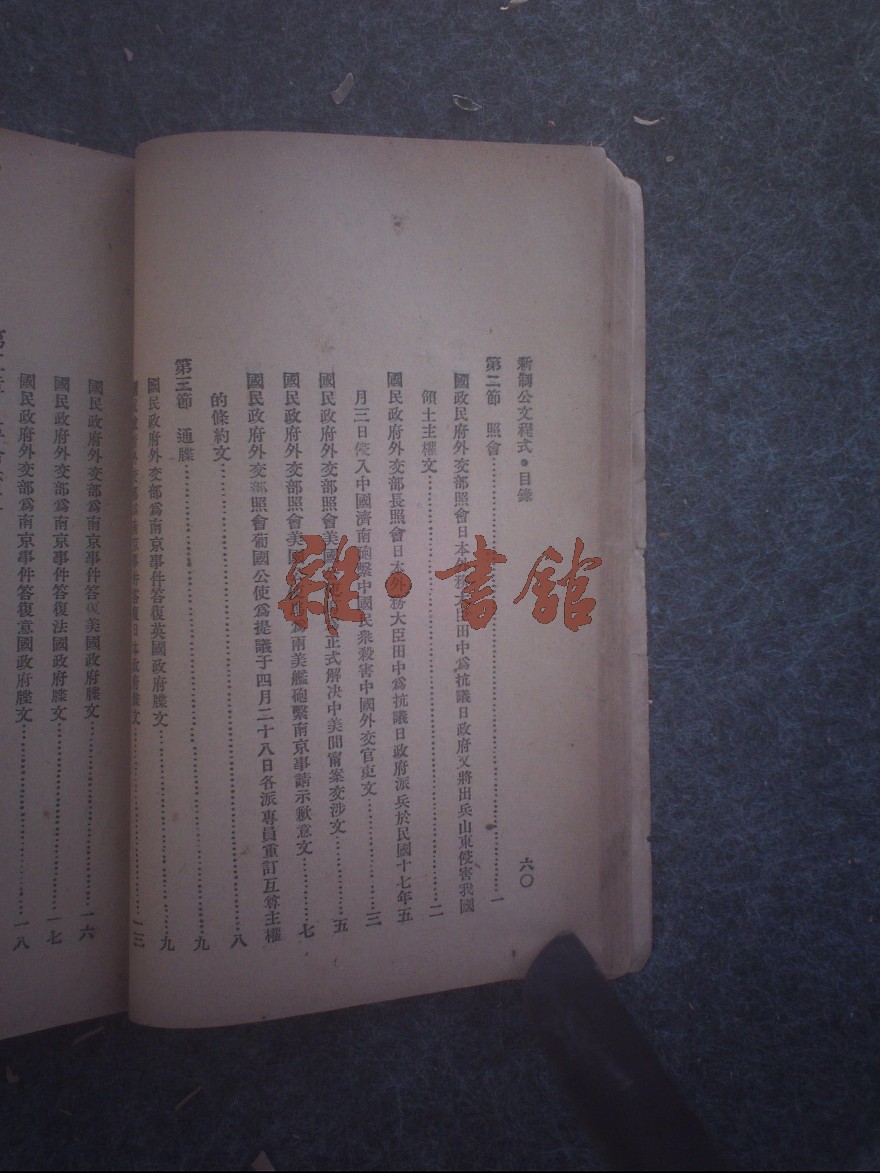 新制公文程式•目錄 六〇
第二節 照會……一
國政民府外交部照會日本外務大臣田中爲抗議日政府又將出兵山東侵害我國
領土主權文……二
國民政府外交部長照會日本外務大臣田中爲抗議日政府派兵於民國十七年五
月三日侵入中國濟南砲擊中國民衆殺害中國外交官吏文……三
國民政府外交部照會美國 正式解决中美間甯案交涉文……五
國民政府外交部照會美國 爲兩美艦砲擊南京事請示歉意文……七
國民政府外交部照會葡國公使爲提議于四月二十八日各派專員重訂互尊主權
的條約文……八
第三節 通牒……九
國民政府外交部爲南京事件答復英國政府牒文……九
外交部爲南京事件答復日本政府牒文……一三
國民政府外交部爲南京事件答復美國政府牒文……一六
國民政府外交部爲南京事件答復法國政府牒文……一七
國民政府外交部爲南京事件答復意國政府牒文……一八
雜•書館